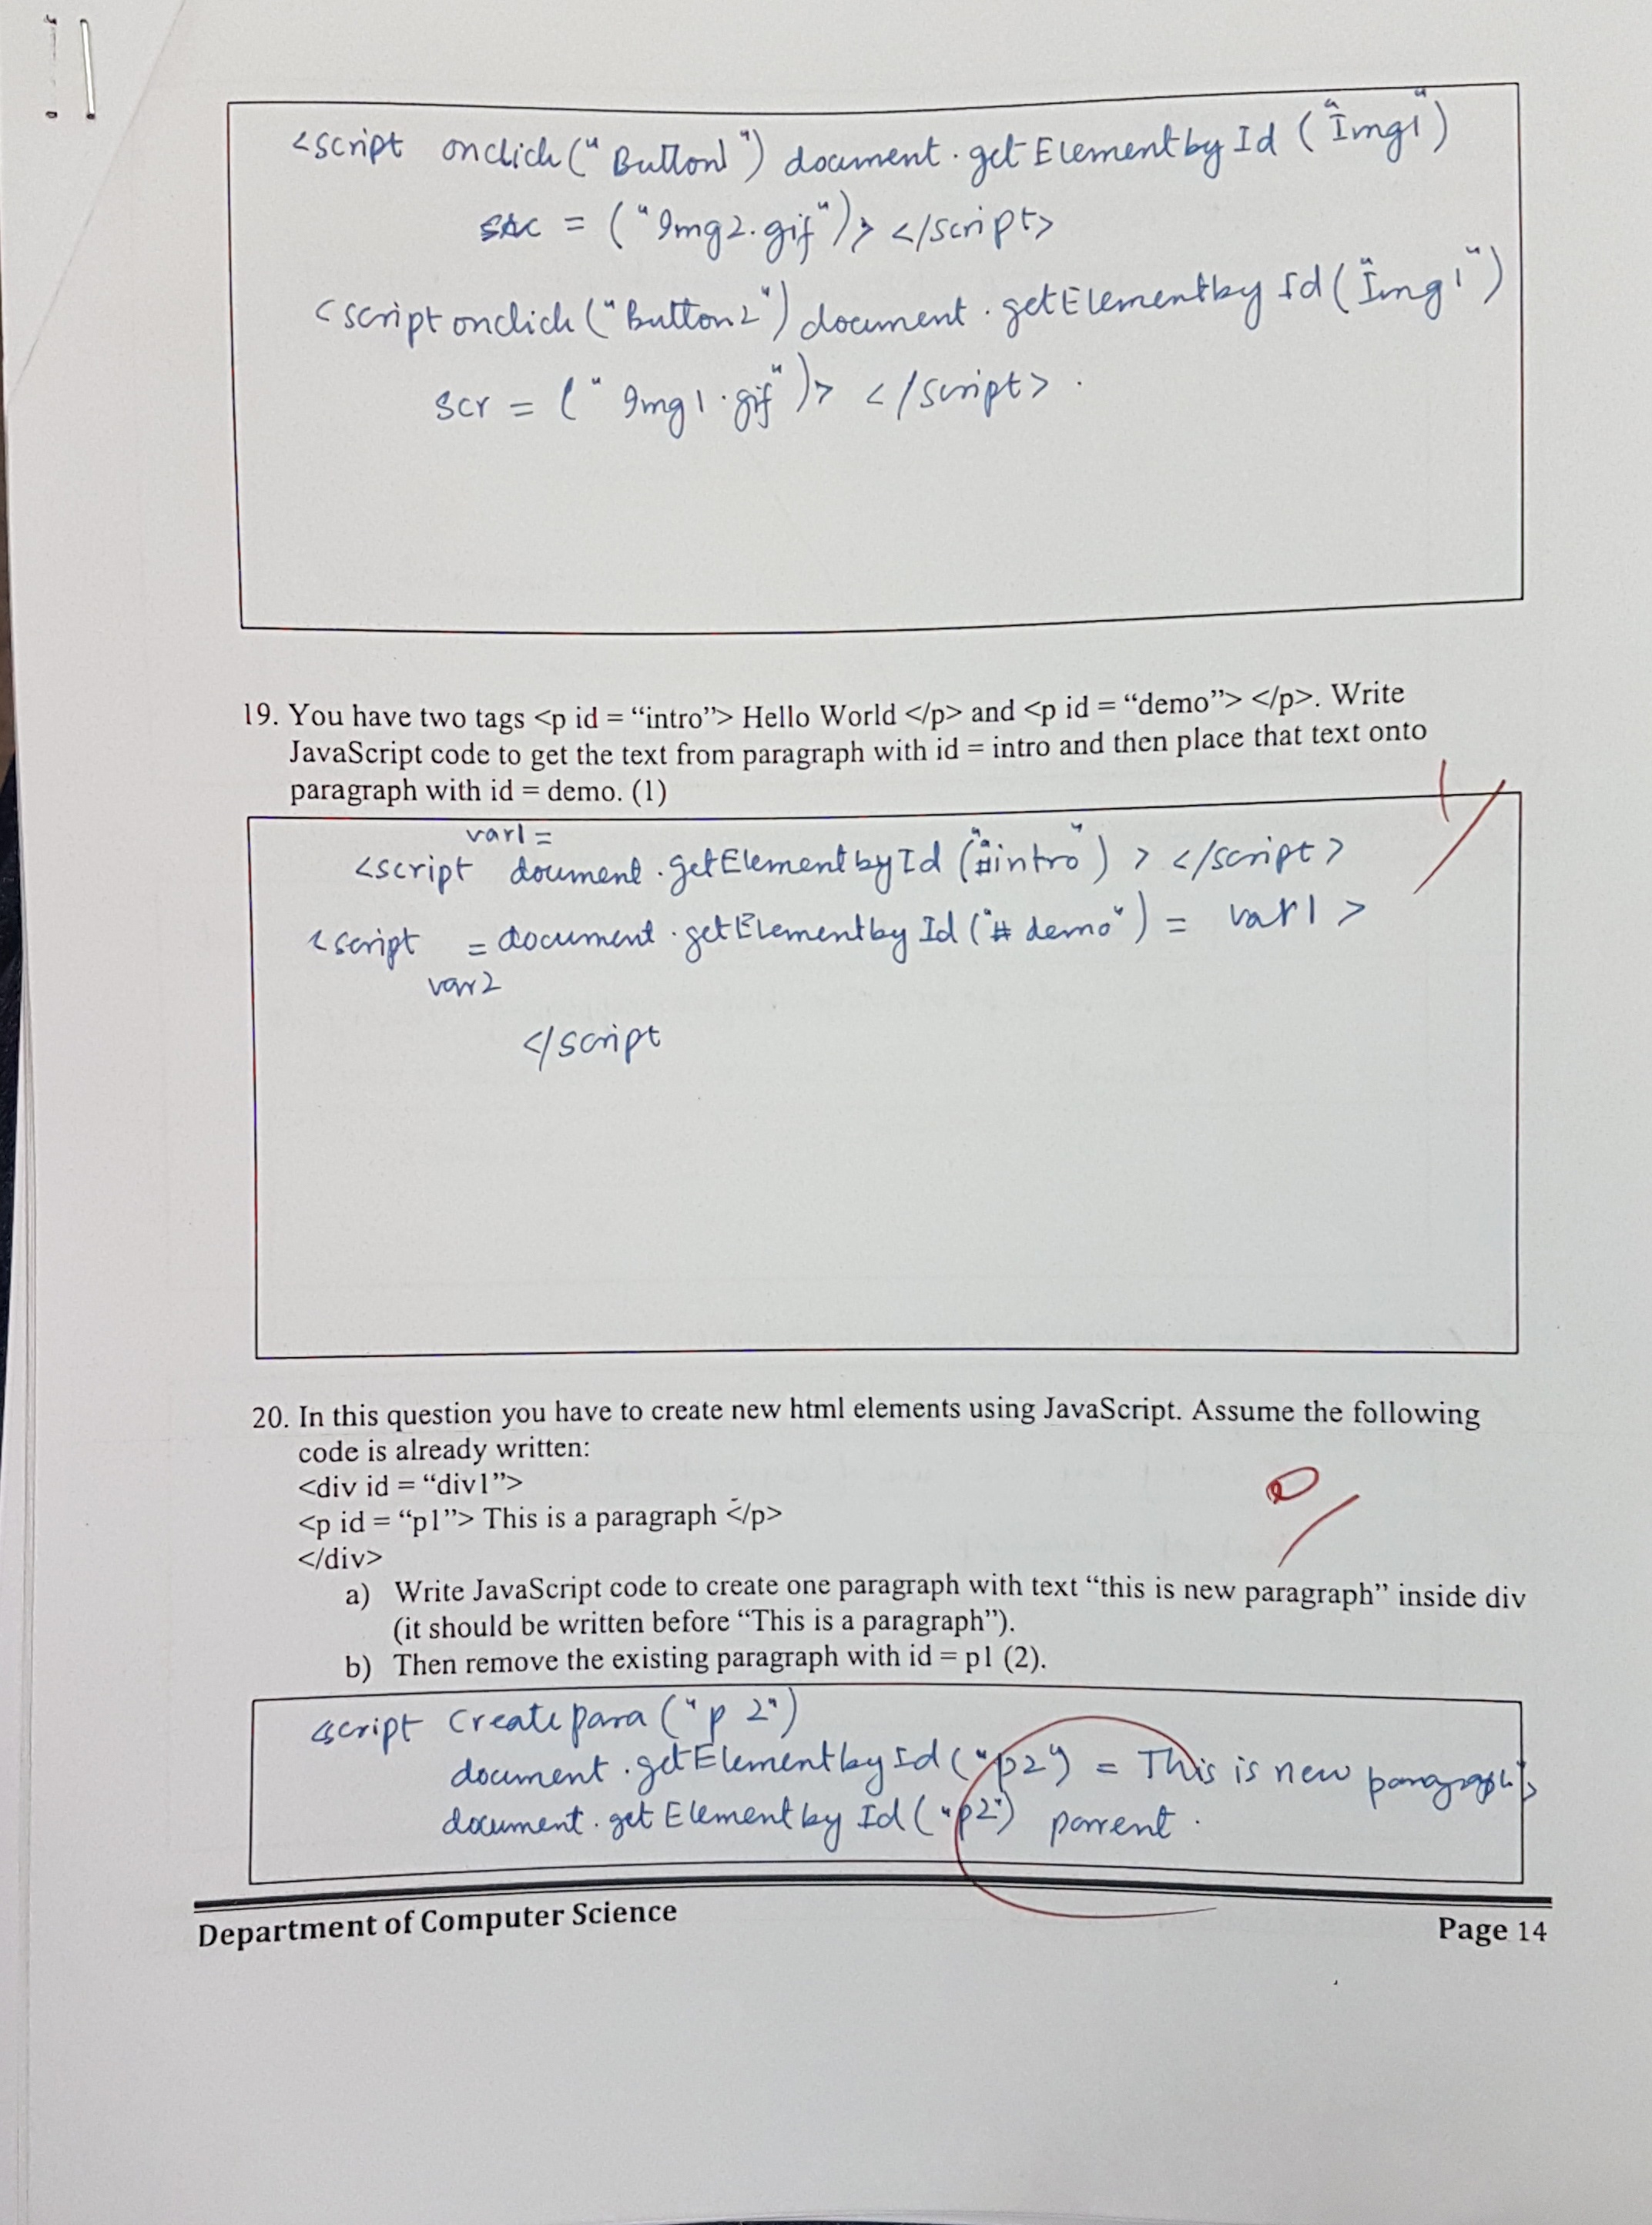 <script onclick("Button1") document.getElementbyId ("Img1")
src = ("Img2.gif")> </script>
<script onclick("Button2") document.getElementbyId("Img1")
scr = ("Img1.gif")> </script>.
19. You have two tags <p id = “intro”> Hello World </p> and <p id = “demo”> </p>. Write
JavaScript code to get the text from paragraph with id = intro and then place that text onto
paragraph with id = demo. (1)
var1 =
<script document.getElementbyId ("#intro") > </script>
<script = document.getElementbyId ("# demo") = var1 >
var2
</script
20. In this question you have to create new html elements using JavaScript. Assume the following
code is already written:
<div id = “div1”>
<p id = “p1”> This is a paragraph </p>
</div>
0/
a) Write JavaScript code to create one paragraph with text “this is new paragraph” inside div
(it should be written before “This is a paragraph”).
b) Then remove the existing paragraph with id = p1 (2).
<script Createpara ("p 2")
document.getElementbyId ("p2") = This is new paragraph>
document.getElementbyId ("p2") parent.
Department of Computer Science
Page 14